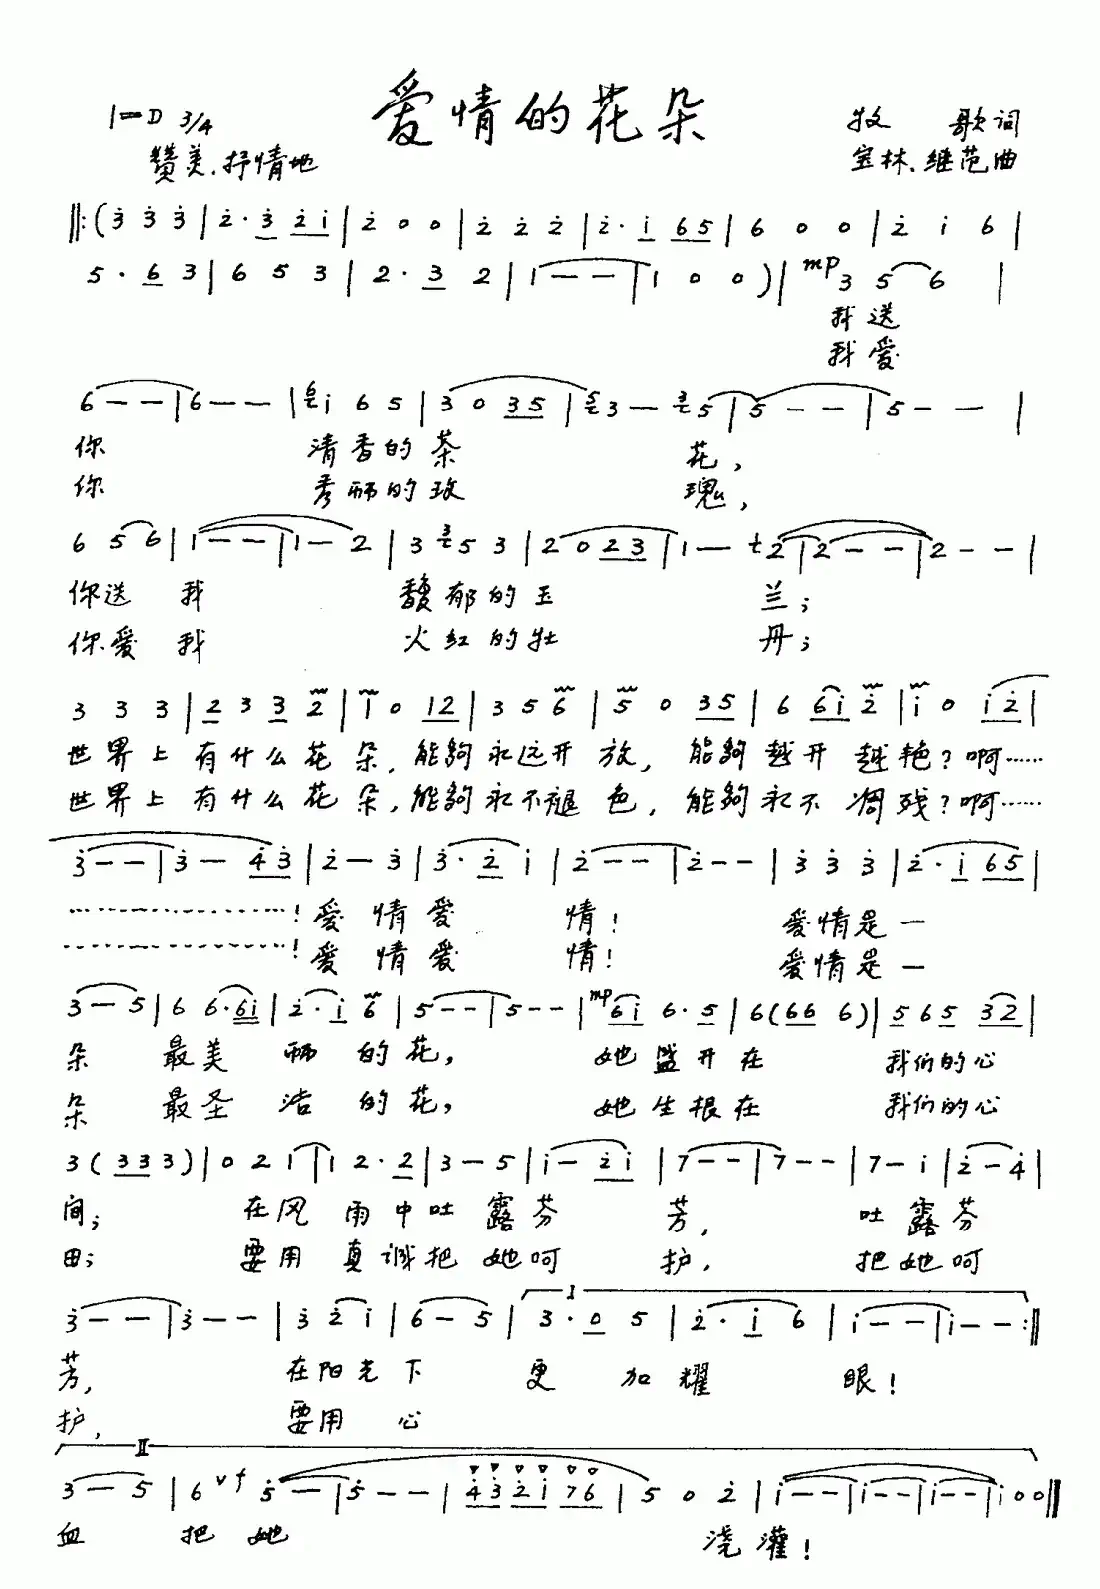 爱情的花朵
1=D 3/4
牧 歌词
赞美.抒情地
宝林、继范曲
‖:(3 3 3|2·3 21|2 0 0|2 2 2|2·1 65|6 0 0|2 1 6|
5·6 3|6 5 3|2·3 2|1 - -|1 0 0)|mp 3 5 6|
我送
我爱
6 - -|6 - -|6 1 6 5|3 0 35|5 3 - 3 5|5 - -|5 - -|
你 清香的茶 花,
你 秀丽的玫 瑰,
6 5 6|1 - -|1 - 2|3 3 5 3|2 0 23|1 - 2|2 - -|2 - -|
你送 我 馥郁的玉 兰;
你爱 我 火红的牡 丹;
3 3 3|2 3 3 2|1 0 12|3 5 6|5 0 35|6 61 2|1 0 12|
世界上有什么花 朵,能夠永远开 放, 能夠越开 越艳?啊……
世界上有什么花 朵,能夠永不褪 色, 能夠永不 凋残?啊……
3 - -|3 - 43|2 - 3|3·2 1|2 - -|2 - -|3 3 3|2·1 65|
………………!爱 情爱 情! 爱情是一
………………!爱 情爱 情! 爱情是一
3 - 5|6 6·61|2·1 6|5 - -|5 - -|mp 61 6·5|6(66 6)|5 65 32|
朵 最美 丽 的花, 她盛开在 我们的心
朵 最圣 洁 的花, 她生根在 我们的心
3(333)|0 2 1|1 2·2|3 - 5|1 - 21|7 - -|7 - -|7 - 1|2 - 4|
间; 在风 雨中吐 露芬 芳, 吐 露芬
田; 要用 真诚把 她呵 护, 把她呵
3 - -|3 - -|3 2 1|6 - 5|I 3·0 5|2·1 6|1 - -|1 - -:‖
芳, 在阳光下 更 加耀 眼!
护, 要用 心
II
3 - 5|6 v f 5 -|5 - -|43 21 76|5 0 2|1 - -|1 - -|1 - -|100‖
血 把 她 浇 灌!